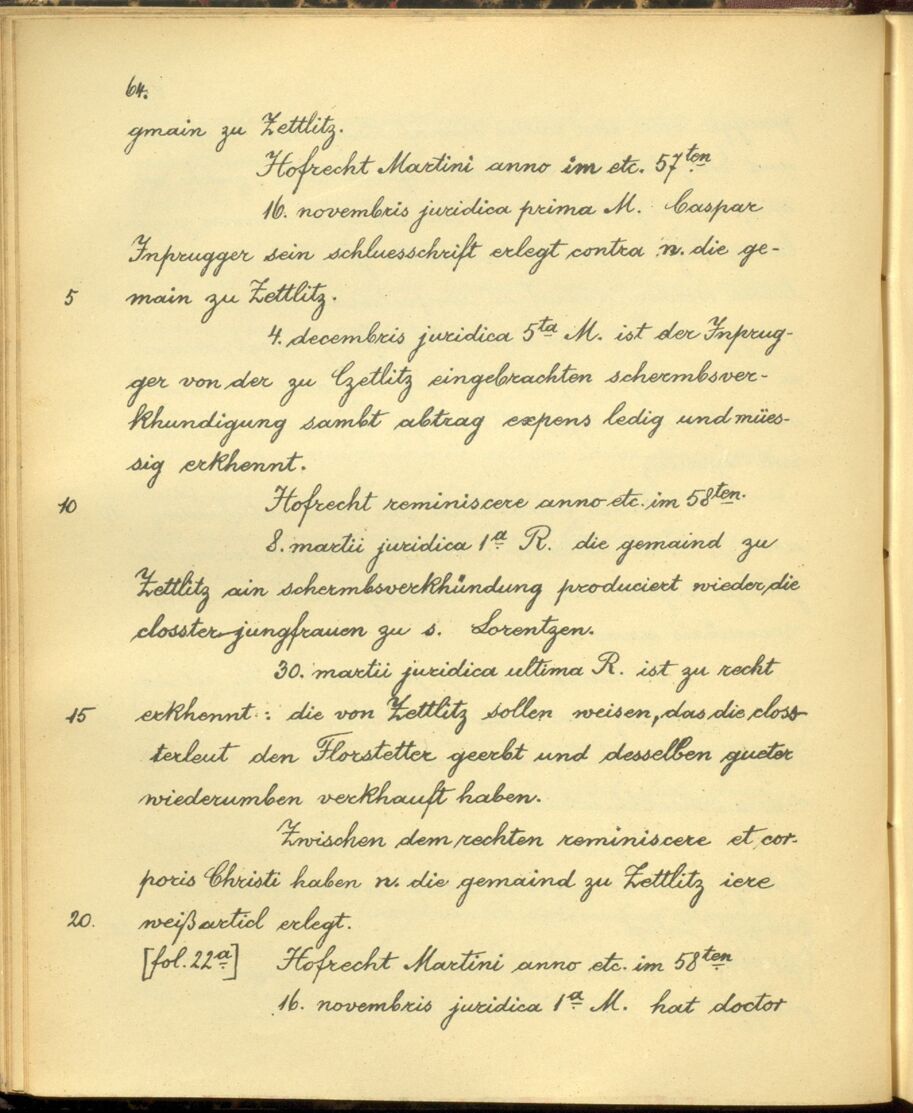 64.
gmain zu Zettlitz.
Hofrecht Martini anno im etc. 57ten
16. novembris juridica prima M. Caspar
Inprugger sein schluesschrift erlegt contra n. die ge-
5 main zu Zettlitz.
4. decembris juridica 5ta M. ist der Inprug-
ger von der zu Czetlitz eingebrachten schermbsver-
khundigung sambt abtrag expens ledig und mües-
sig erkhennt.
10 Hofrecht reminiscere anno etc. im 58ten.
8. martii juridica 1a R. die gemaind zu
Zettlitz ain schermbsverkhündung produciert wieder die
closster-jungfrauen zu s. Lorentzen.
30. martii juridica ultima R. ist zu recht
15 erkhennt: die von Zettlitz sollen weisen, das die closs-
terleut den Florstetter geerbt und desselben gueter
wiederumben verkhauft haben.
Zwischen dem rechten reminiscere et cor-
poris Christi haben n. die gemaind zu Zettlitz iere
20. weißarticl erlegt.
[fol. 22a] Hofrecht Martini anno etc. im 58ten
16. novembris juridica 1a M. hat doctor